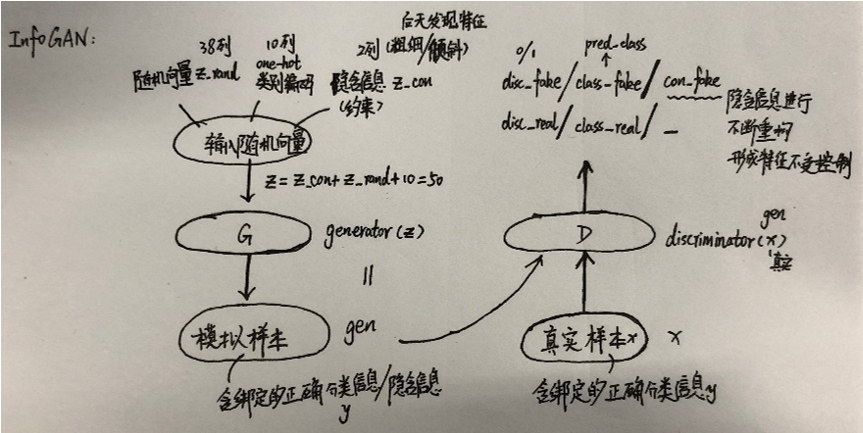 InfoGAN:
38列
随机向量z_rand
10列
one-hot
类别编码
后天发现特征
2列(粗细/倾斜)
隐含信息 z_con
(约束)
输入随机向量
z = z_con + z_rand + 10 = 50
G
generator(z)
=
模拟样本
gen
含绑定的正确分类信息/隐含信息
y
0/1
pred_class
disc_fake/class_fake/con_fake
disc_real/class_real/—
隐含信息进行
不断重构
形成特征不受控制
D
gen
discriminator(x)
真实
真实样本x
x
含绑定的正确分类信息y